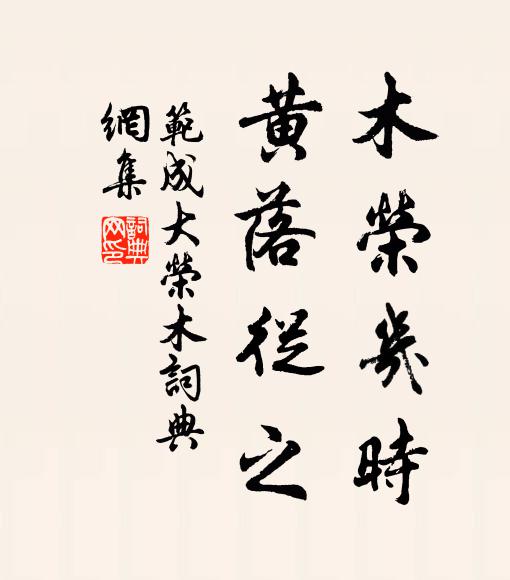 木榮幾時
黃落從之
範成大榮木詞典
網集
詞典
网印